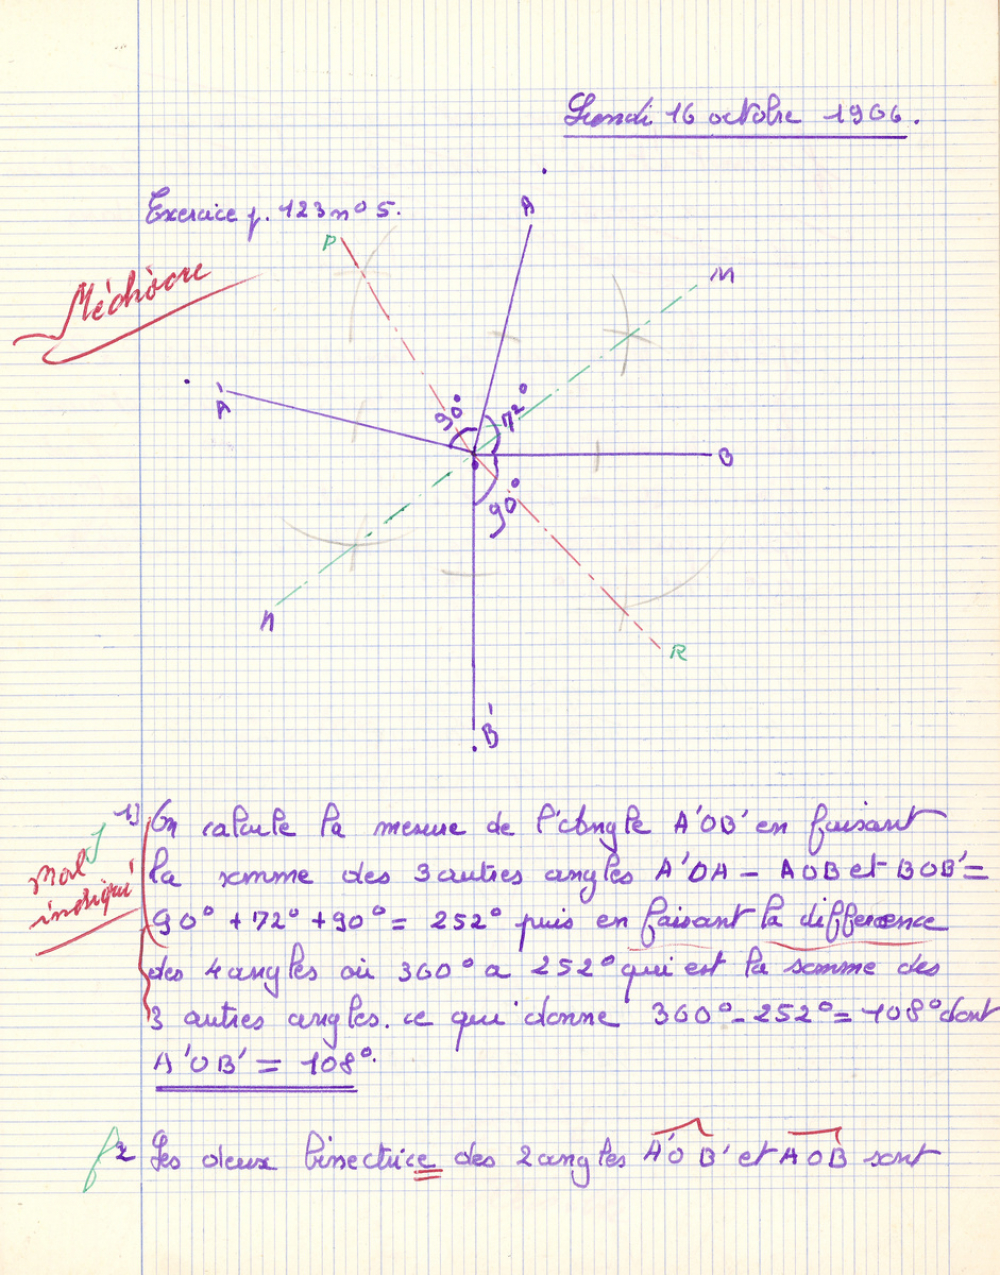 Lundi 16 octobre 1966.
Exercice p. 123 n° 5.
Médiocre
P
A
M
A'
90°
72°
B
90°
N
R
B'
1) On calcule la mesure de l'angle A'OB' en faisant
Mal
indiqué
la somme des 3 autres angles A'OA - AOB et BOB' =
90° + 72° + 90° = 252° puis en faisant la difference
des 4 angles où 360° a 252° qui est la somme des
3 autres angles. ce qui donne 360° - 252° = 108° dont
A'OB' = 108°.
2 Les deux bissectrice des 2 angles A'OB' et AOB sont